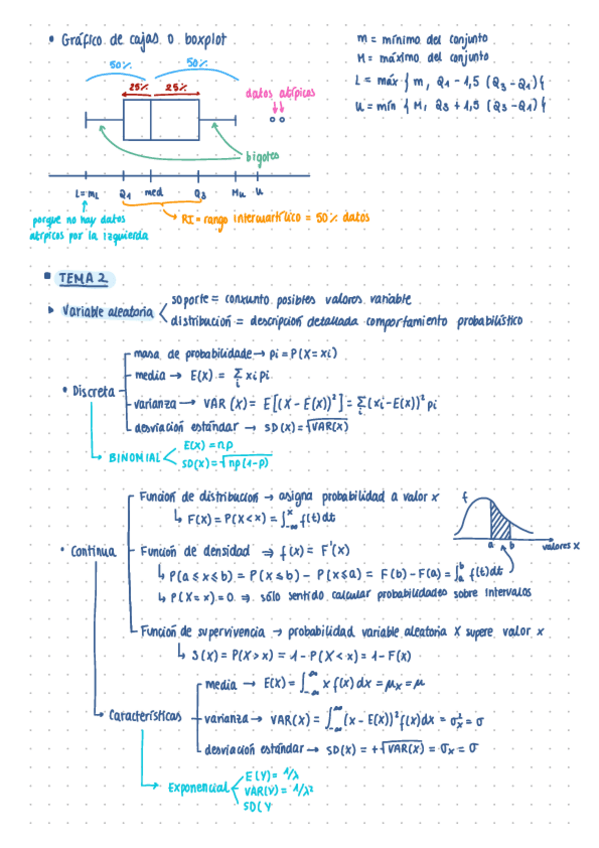 • Gráfico de cajas o boxplot
50% 50%
25% 25%
datos atípicos
bigotes
L=m Q1 med Q3 Mu U
porque no hay datos
atípicos por la izquierda
RI = rango intercuartílico = 50% datos
m = mínimo del conjunto
M = máximo del conjunto
L = máx { m, Q1 - 1,5 (Q3 - Q1) }
U = mín { M, Q3 + 1,5 (Q3 - Q1) }
TEMA 2
Variable aleatoria
soporte = conxunto posibles valores variable
distribución = descripción detallada comportamiento probabilístico
• Discreta
masa de probabilidade → pi = P(X = xi)
media → E(X) = Σi xi pi
varianza → VAR (X) = E[(X - E(X))²] = Σi (xi - E(X))² pi
desviación estándar → SD(X) = √VAR(X)
BINOMIAL
E(X) = np
SD(X) = √np(1-p)
• Continua
Función de distribución → asigna probabilidad a valor x
↳ F(X) = P(X<x) = ∫-∞^x f(t)dt
Función de densidad ⇒ f(x) = F'(x)
↳ P(a ≤ x ≤ b) = P(X ≤ b) - P(X ≤ a) = F(b) - F(a) = ∫a^b f(t)dt
↳ P(X = x) = 0 ⇒ sólo sentido calcular probabilidades sobre intervalos
f
a b valores X
Función de supervivencia → probabilidad variable aleatoria X supere valor x
↳ S(X) = P(X > x) = 1 - P(X < x) = 1 - F(x)
Características
media → E(X) = ∫-∞^∞ x f(x) dx = μx = μ
varianza → VAR(X) = ∫-∞^∞ (x - E(X))² f(x)dx = σx² = σ
desviación estándar → SD(X) = +√VAR(X) = σx = σ
Exponencial
E(Y) = 1/λ
VAR(Y) = 1/λ²
SD(Y